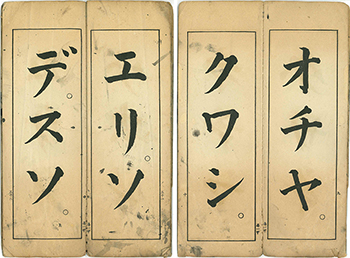 オチヤ。
クワシ。
エリ。ソ
デ。スソ。